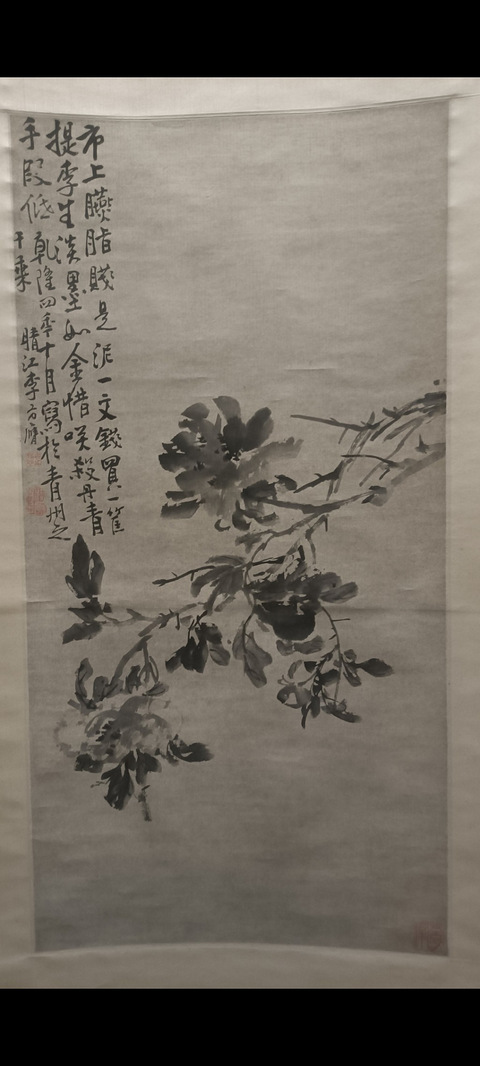 市上臙脂賤是泥一文錢買一筐
提李生淡墨如金惜咲殺丹青
手段低乾隆四秊十月寫於青州之
千乘晴江李方膺